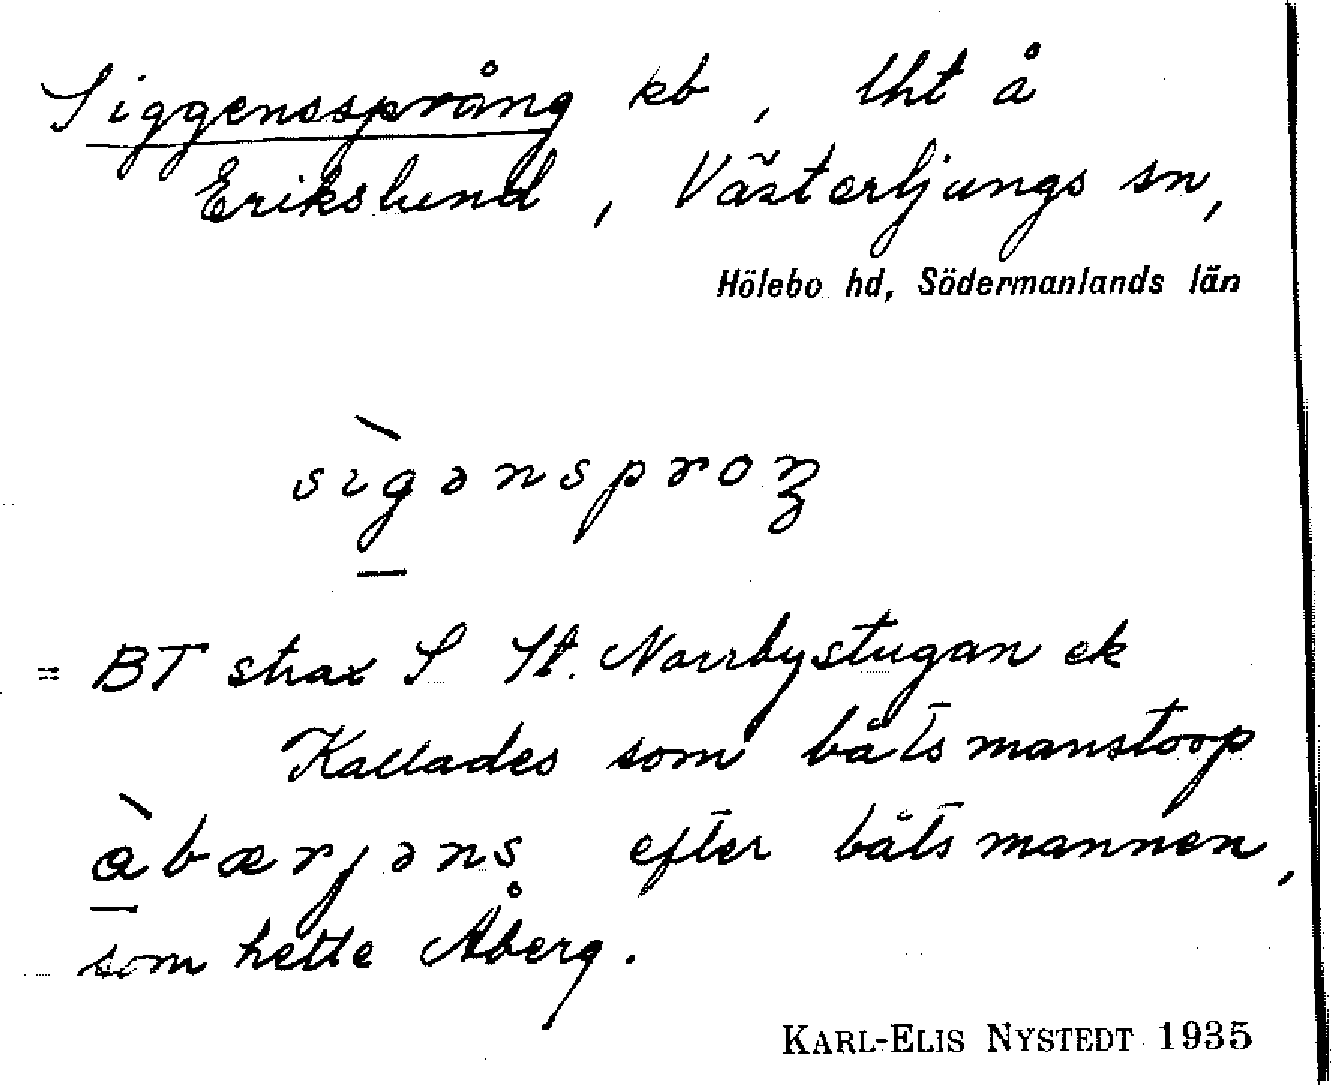 Siggenssprång kb, lht å
Erikslund, Västerljungs sn,
Hölebo hd, Södermanlands län
sìgənsproŋ
= BT strax S St. Norrbystugan ek
Kallades som båtsmanstorp
àbærjəns efter båtsmannen,
som hette Åberg.
KARL-ELIS NYSTEDT 1935